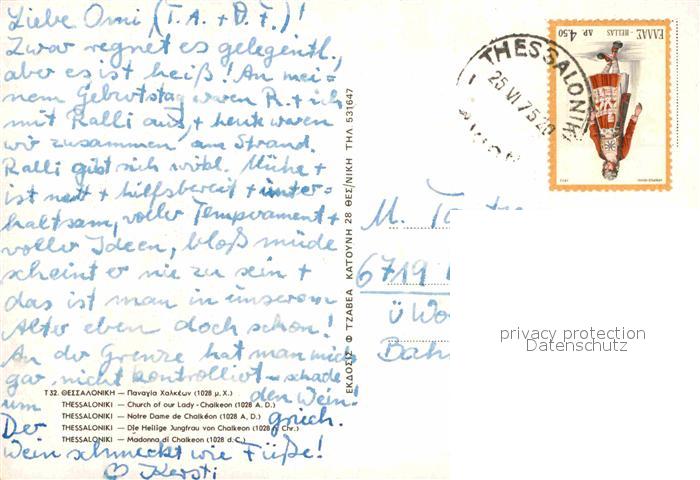 Liebe Omi (T. A. + D. F.)!
Zwar regnet es gelegentl.,
aber es ist heiß! An mei=
nem Geburtstag waren R. + ich
mit Ralli aus + heute waren
wir zusammen am Strand.
Ralli gibt sich wirkl. Mühe +
ist nett + hilfsbereit + unter=
haltsam, voller Temperament +
voller Ideen, bloß müde
scheint er nie zu sein +
das ist man in unserem
Alter eben doch schon!
An der Grenze hat man mich
gar nicht kontrolliert – schade
um den Wein!
Der griech.
Wein schmeckt wie Füße!
Kersti
T 32. ΘΕΣΣΑΛΟΝΙΚΗ — Παναγία Χαλκέων (1028 μ. Χ.)
THESSALONIKI — Church of our Lady - Chalkeon (1028 A. D.)
THESSALONIKI — Notre Dame de Chalkéon (1028 A. D.)
THESSALONIKI — Die Heilige Jungfrau von Chalkeon (1028 n. Chr.)
THESSALONIKI — Madonna di Chalkeon (1028 d. C.)
ΕΚΔΟΣΙΣ Φ ΤΖΑΒΕΑ ΚΑΤΟΥΝΗ 28 ΘΕΣ/ΝΙΚΗ ΤΗΛ 531647
THESSALONIKI
25 VI 75 20
ΕΛΛΑΣ - HELLAS ΔΡ. 4.50
M.
6719
ü Wo
Bah
privacy protection
Datenschutz